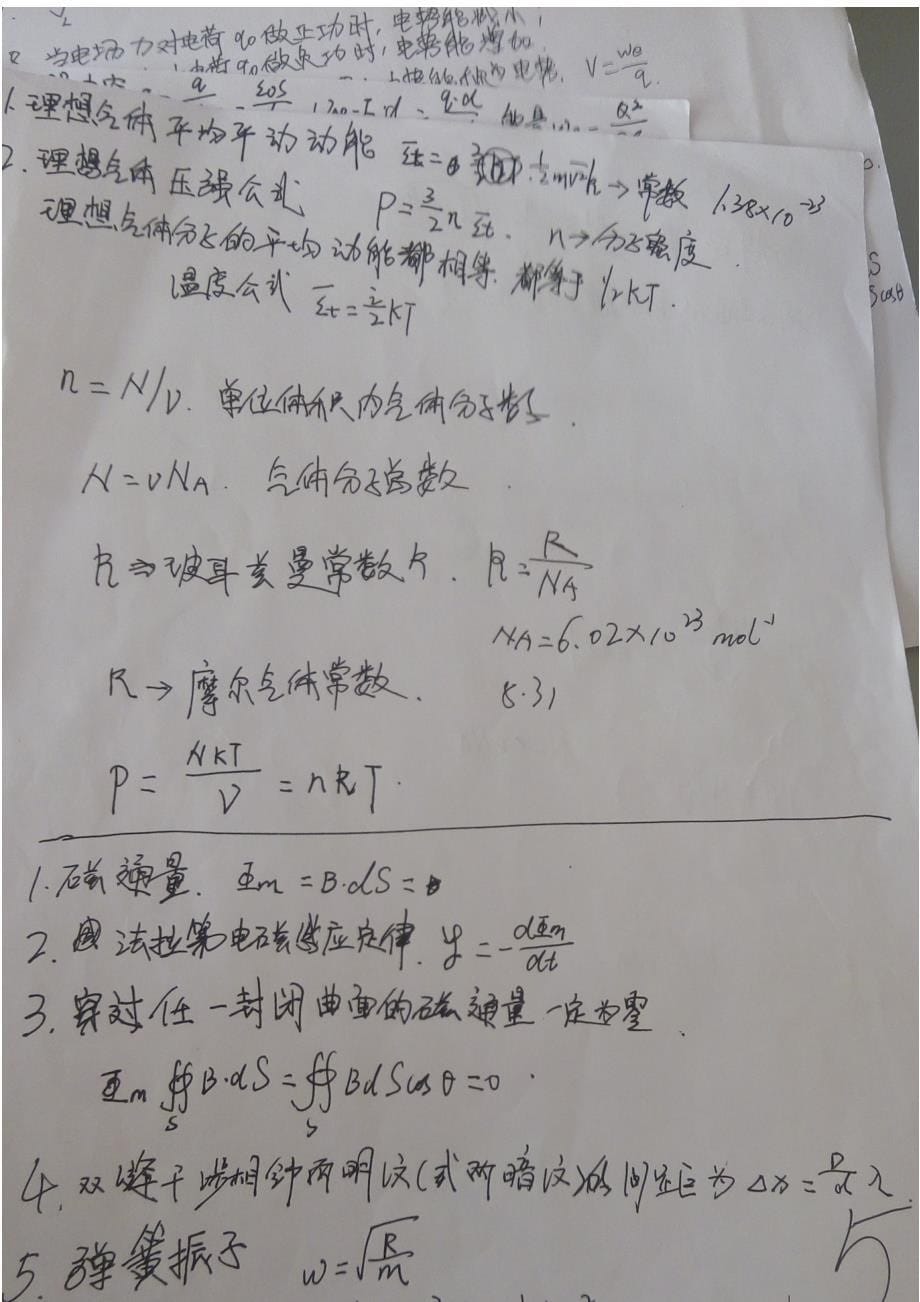 当电场力对电荷q₀做正功时,电势能减小;
电荷q₀做负功时,电势能增加.
V=We/q
1.理想气体平均平动动能 ε̄t= 1/2mv̄² k→常数 1.38×10⁻²³
2.理想气体压强公式 P=3/2 n ε̄t. n→分子密度
理想气体分子的平均动能都相等.都等于1/2KT.
温度公式 ε̄t=i/2KT
n=N/V.单位体积内气体分子数.
N=υNA. 气体分子总数
k⇒玻耳兹曼常数k. k=R/NA
NA=6.02×10²³mol⁻¹
R→摩尔气体常数. 8.31
P=NKT/V=nkT.
1.磁通量. Φm=B·dS=
2.法拉第电磁感应定律. y=-dΦm/dt
3.穿过任一封闭曲面的磁通量一定为零.
Φm∯s B·dS=∯s BdScosθ=0.
4.双缝干涉相邻两明纹(或两暗纹)的间距为Δx=D/d λ.
5.弹簧振子 w=√k/m
5